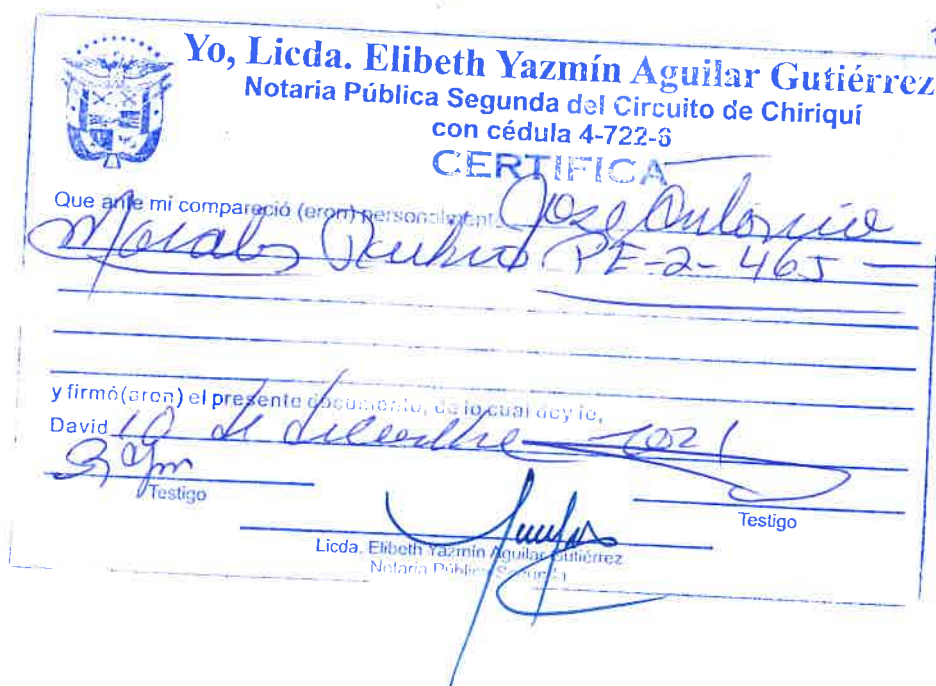 Yo, Licda. Elibeth Yazmín Aguilar Gutiérrez
Notaria Pública Segunda del Circuito de Chiriquí
con cédula 4-722-6
CERTIFICA
Que ante mi compareció (eron) personalment Jose Antonio
Morales PE-2-465
y firmó(aron) el presente documento, de lo cual doy fe,
David 10 de diciembre 2021
Testigo
Testigo
Licda. Elibeth Yazmín Aguilar Gutiérrez
Notaria Pública Segunda